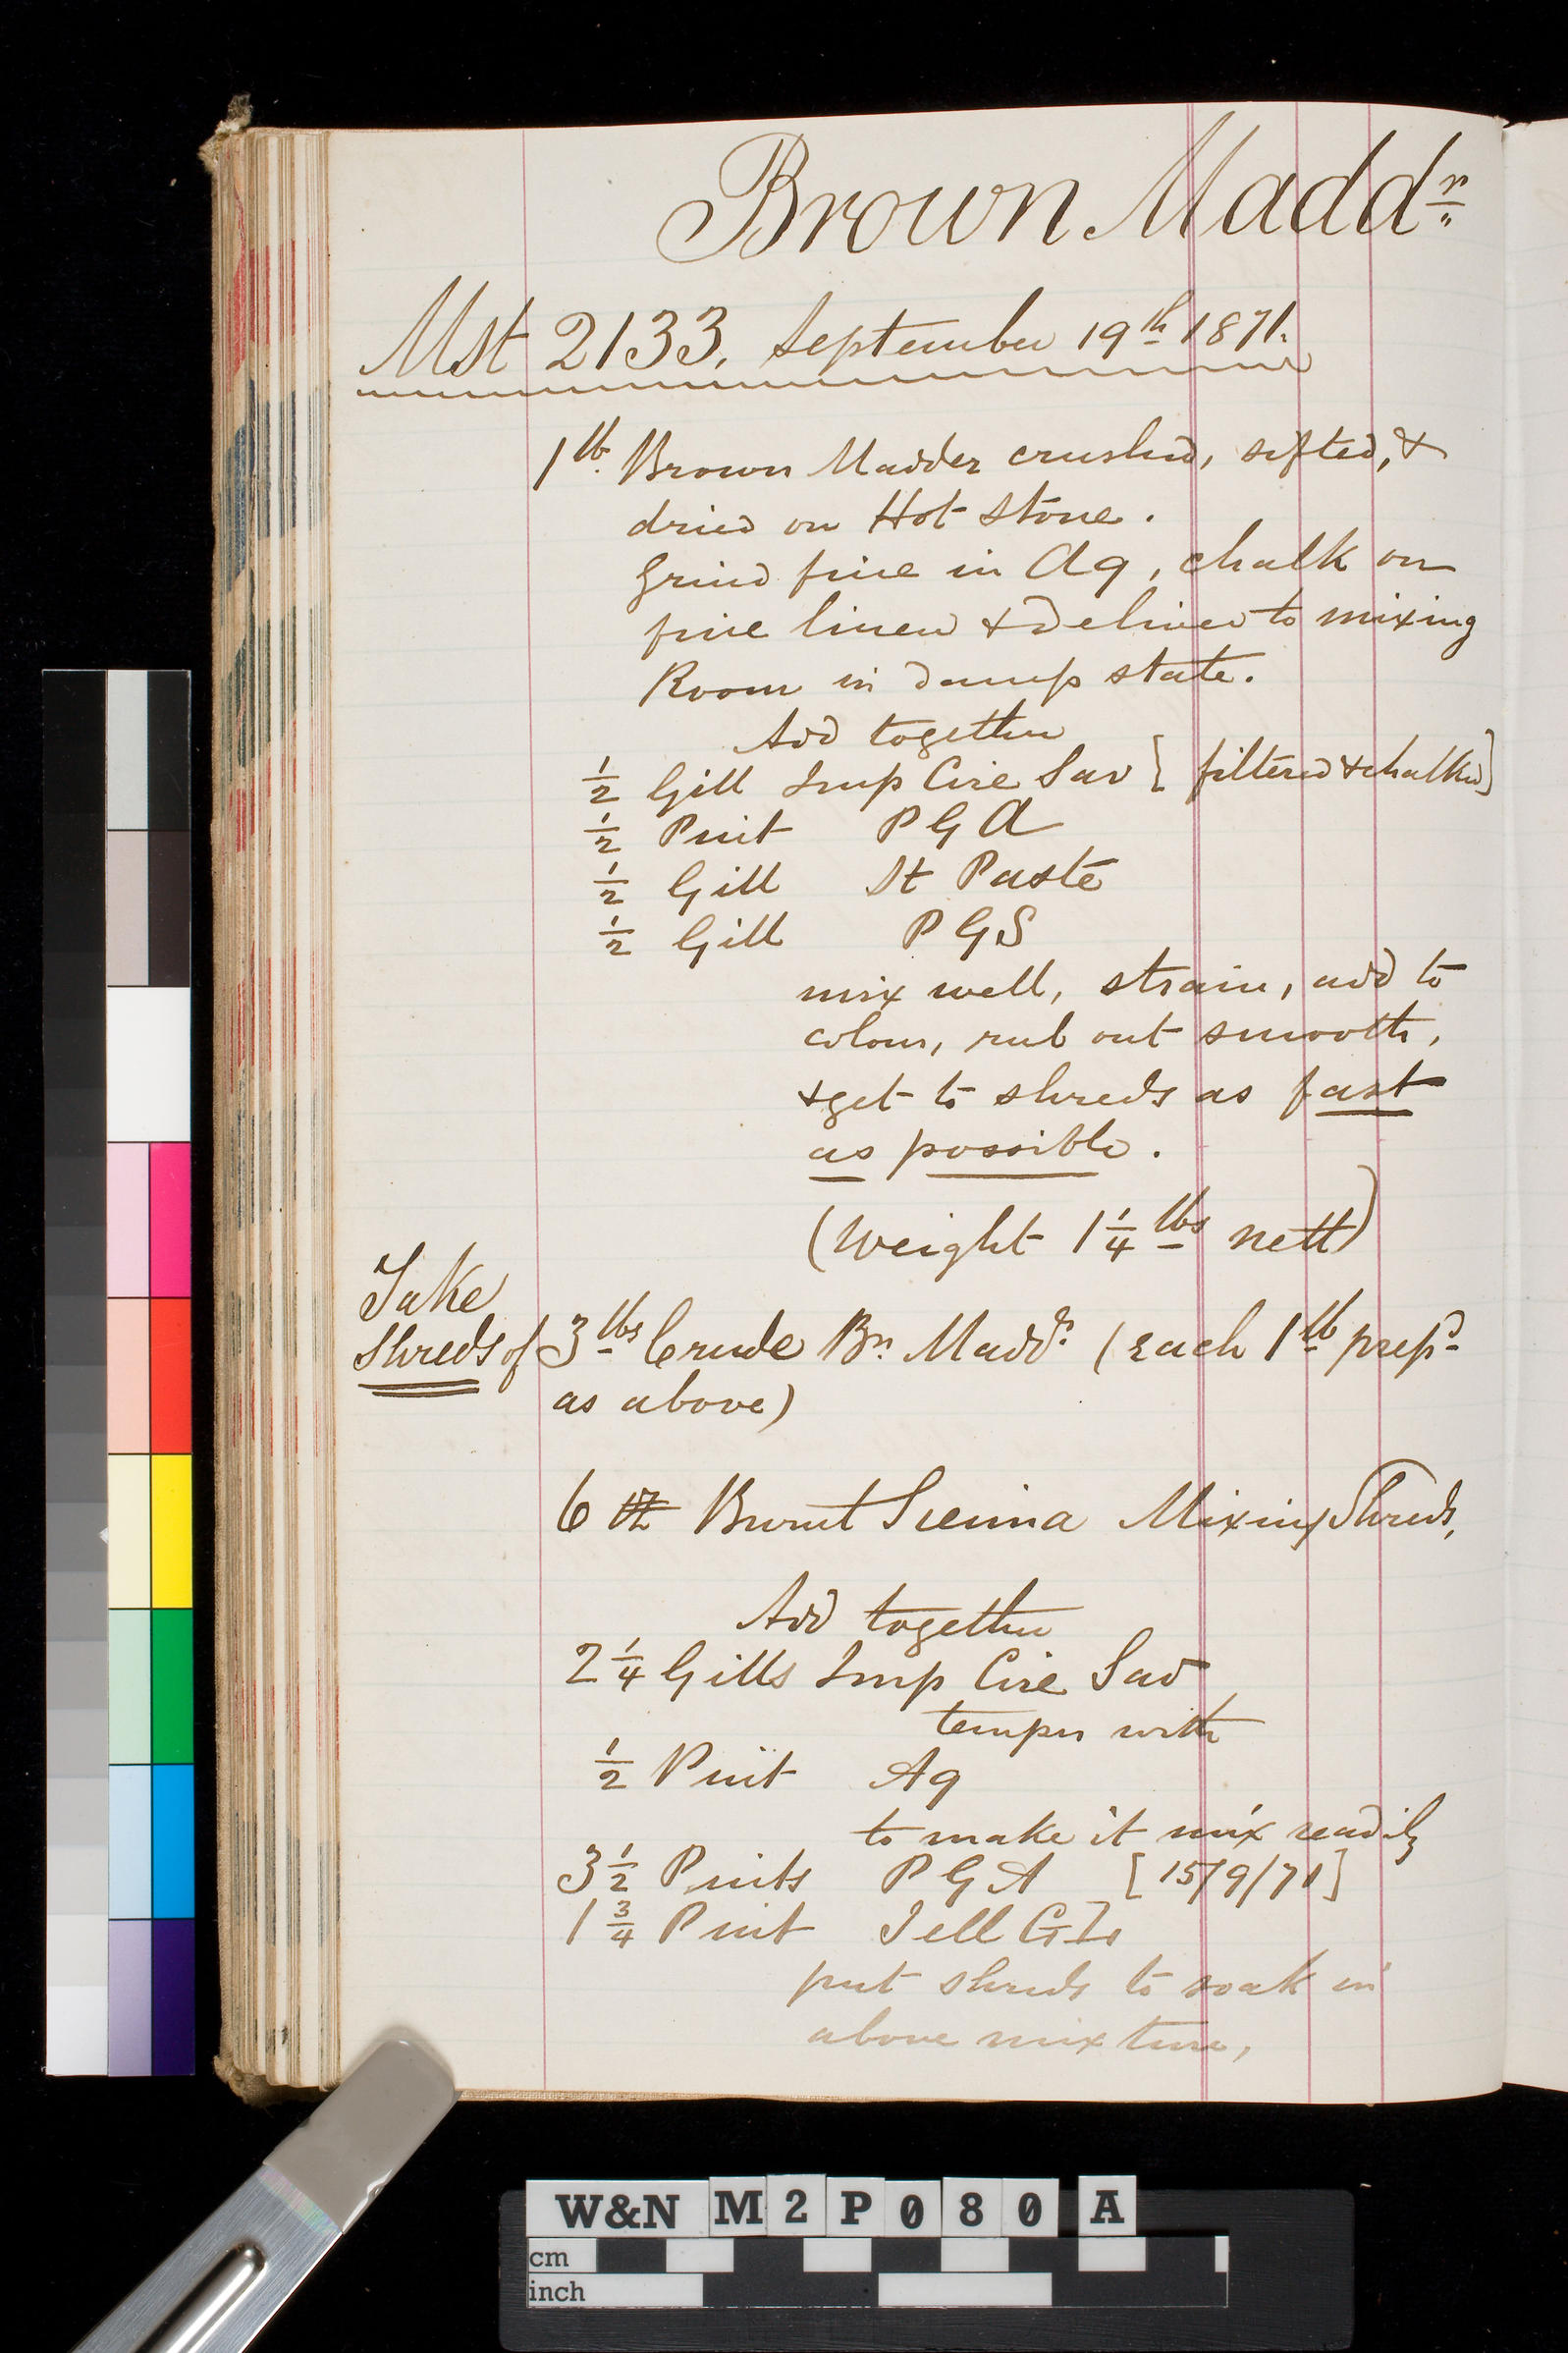 Brown Maddr
Mst 2133. September 19th 1871.
1lb. Brown Madder crushed, sifted, &
dried on Hot Stone.
Grind fine in Aq, chalk on
fine linen & deliver to mixing
Room in damp state.
Add together
½ Gill Imp Cire Sav [filtered & chalked]
½ Pint P G A
½ Gill St Paste
½ Gill P G S
mix well, strain, add to
colour, rub out smooth,
& get to shreds as fast
as possible.
(Weight 1¼ lbs nett)
Take
Shreds of 3 lbs Crude Bn. Maddr. (Each 1lb prepd
as above)
6 lb Burnt Sienna Mixing Shreds,
Add together
2¼ Gills Imp Cire Sav
temper with
½ Pint Aq
to make it mix readily
3½ Pints P G A [15/9/71]
1¾ Pint Jell G L
put shreds to soak in
above mixture,
W&N M2P080 A
cm
inch